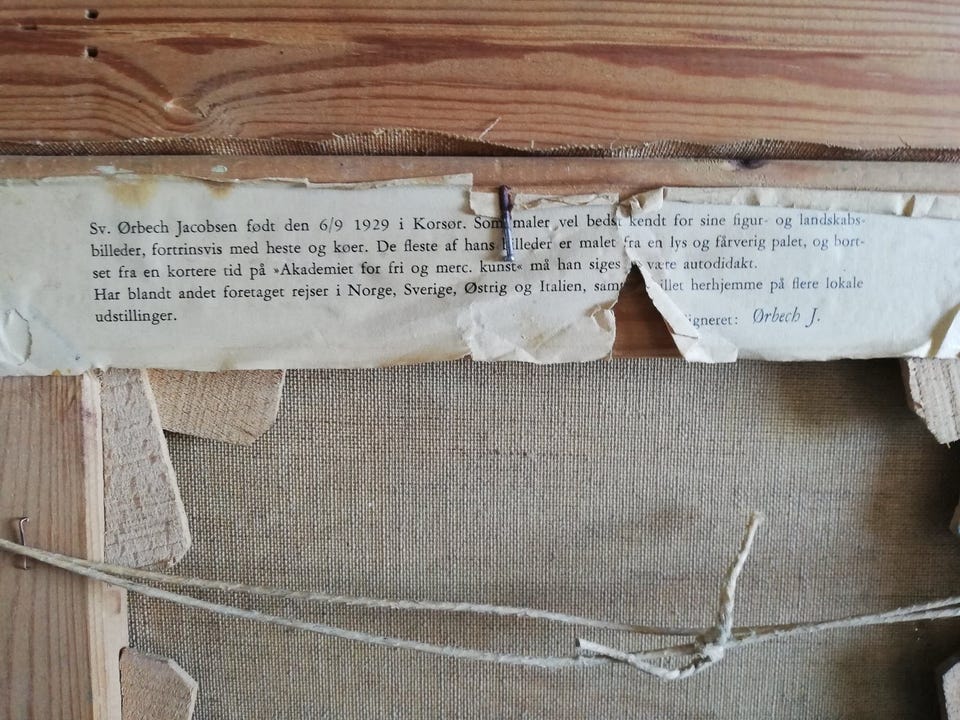 Sv. Ørbech Jacobsen født den 6/9 1929 i Korsør. Som maler vel bedst kendt for sine figur- og landskabs-
billeder, fortrinsvis med heste og køer. De fleste af hans billeder er malet fra en lys og fårverig palet, og bort-
set fra en kortere tid på »Akademiet for fri og merc. kunst« må han siges være autodidakt.
Har blandt andet foretaget rejser i Norge, Sverige, Østrig og Italien, samt illet herhjemme på flere lokale
udstillinger.
igneret: Ørbech J.